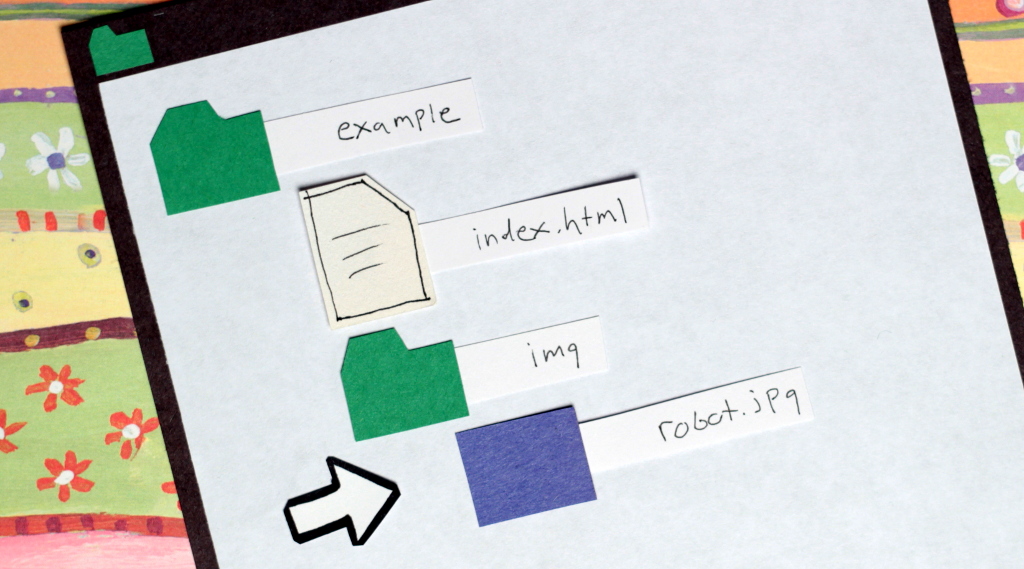 example
index.html
img
robot.jpg